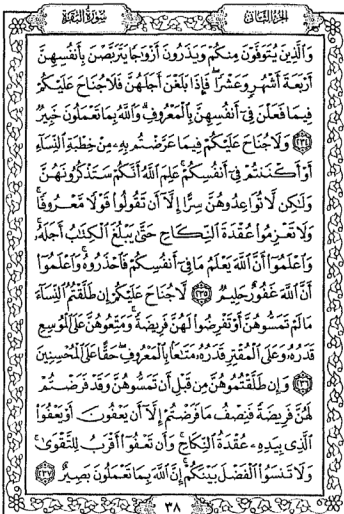 الجزء الثاني سورة البقرة
وَالَّذِينَ يُتَوَفَّوْنَ مِنكُمْ وَيَذَرُونَ أَزْوَاجًا يَتَرَبَّصْنَ بِأَنفُسِهِنَّ
أَرْبَعَةَ أَشْهُرٍ وَعَشْرًا فَإِذَا بَلَغْنَ أَجَلَهُنَّ فَلَا جُنَاحَ عَلَيْكُمْ
فِيمَا فَعَلْنَ فِي أَنفُسِهِنَّ بِالْمَعْرُوفِ وَاللَّهُ بِمَا تَعْمَلُونَ خَبِيرٌ
٢٣٤ وَلَا جُنَاحَ عَلَيْكُمْ فِيمَا عَرَّضْتُم بِهِ مِنْ خِطْبَةِ النِّسَاءِ
أَوْ أَكْنَنتُمْ فِي أَنفُسِكُمْ عَلِمَ اللَّهُ أَنَّكُمْ سَتَذْكُرُونَهُنَّ
وَلَٰكِن لَّا تُوَاعِدُوهُنَّ سِرًّا إِلَّا أَن تَقُولُوا قَوْلًا مَّعْرُوفًا
وَلَا تَعْزِمُوا عُقْدَةَ النِّكَاحِ حَتَّىٰ يَبْلُغَ الْكِتَابُ أَجَلَهُ
وَاعْلَمُوا أَنَّ اللَّهَ يَعْلَمُ مَا فِي أَنفُسِكُمْ فَاحْذَرُوهُ وَاعْلَمُوا
أَنَّ اللَّهَ غَفُورٌ حَلِيمٌ ٢٣٥ لَّا جُنَاحَ عَلَيْكُمْ إِن طَلَّقْتُمُ النِّسَاءَ
مَا لَمْ تَمَسُّوهُنَّ أَوْ تَفْرِضُوا لَهُنَّ فَرِيضَةً وَمَتِّعُوهُنَّ عَلَى الْمُوسِعِ
قَدَرُهُ وَعَلَى الْمُقْتِرِ قَدَرُهُ مَتَاعًا بِالْمَعْرُوفِ حَقًّا عَلَى الْمُحْسِنِينَ
٢٣٦ وَإِن طَلَّقْتُمُوهُنَّ مِن قَبْلِ أَن تَمَسُّوهُنَّ وَقَدْ فَرَضْتُمْ
لَهُنَّ فَرِيضَةً فَنِصْفُ مَا فَرَضْتُمْ إِلَّا أَن يَعْفُونَ أَوْ يَعْفُوَا
الَّذِي بِيَدِهِ عُقْدَةُ النِّكَاحِ وَأَن تَعْفُوا أَقْرَبُ لِلتَّقْوَىٰ
وَلَا تَنسَوُا الْفَضْلَ بَيْنَكُمْ إِنَّ اللَّهَ بِمَا تَعْمَلُونَ بَصِيرٌ ٢٣٧
٣٨